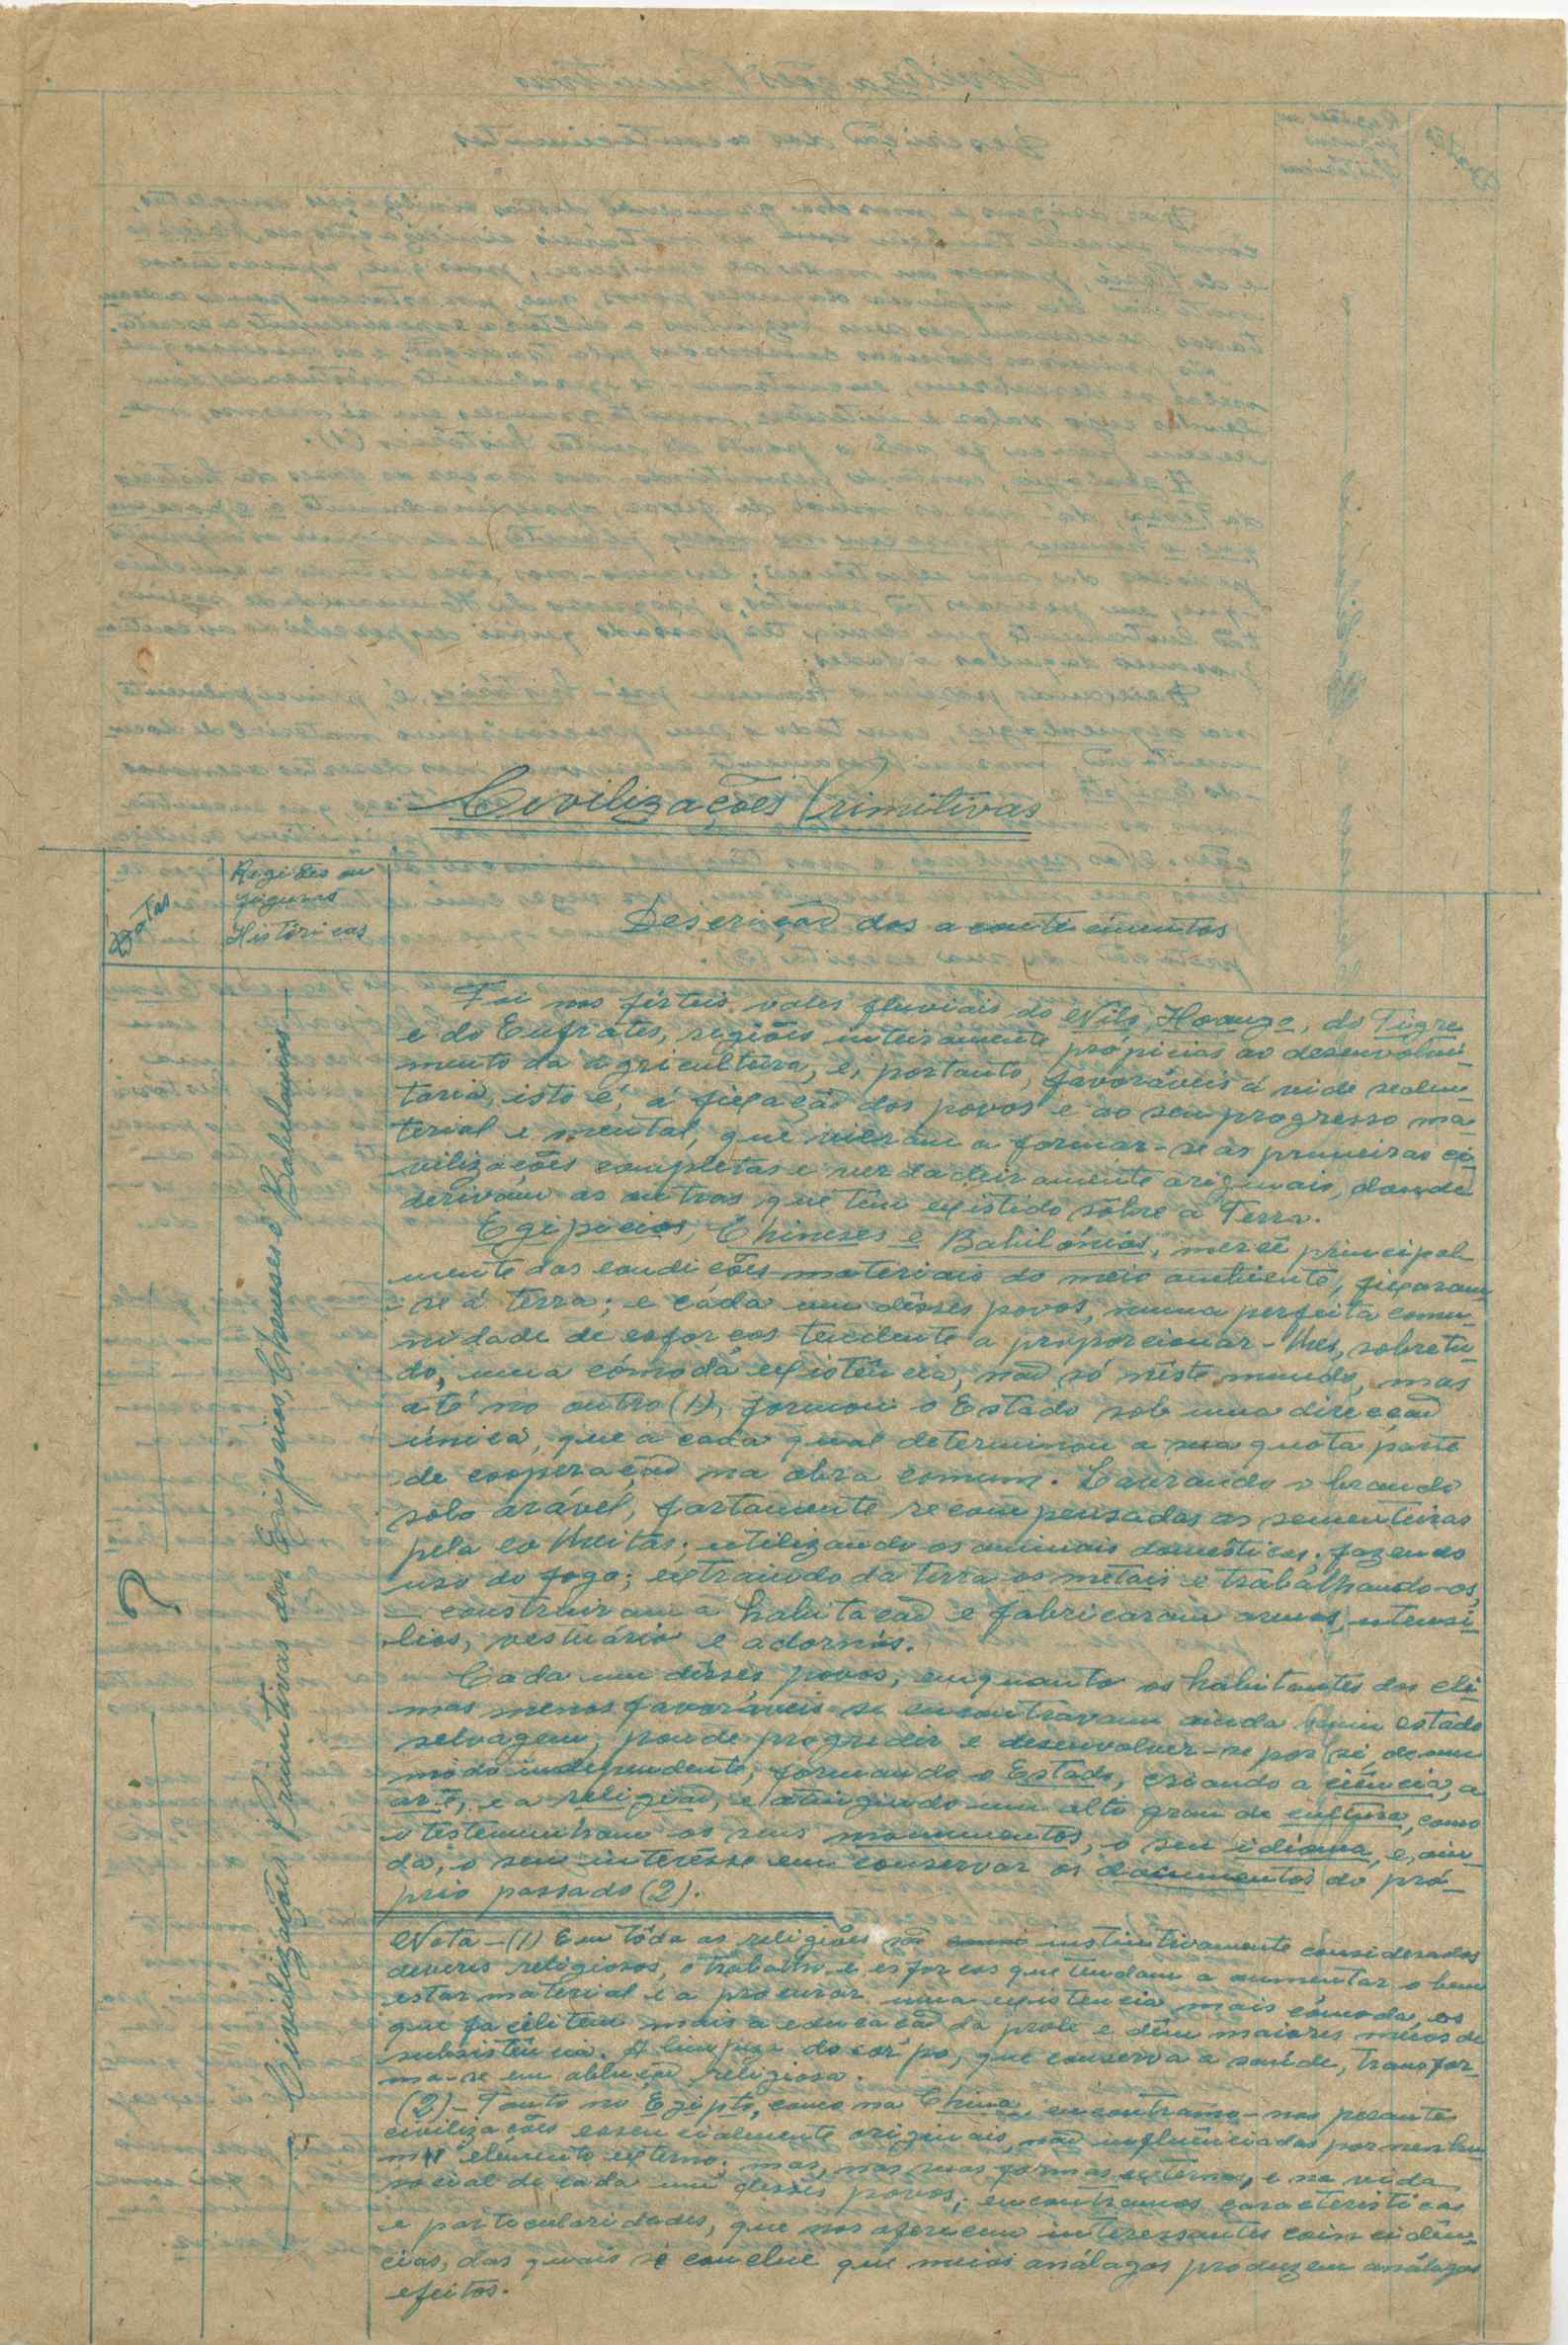 Civilizações Primitivas
Datas
Regiões ou
figuras
Históricas
Descrição dos acontecimentos
?
Civilizações Primitivas dos Egípcios, Chineses e Babilónios
Foi nos férteis vales fluviais do Nilo, Hoango, do Tigre
e do Eufrates, regiões inteiramente própicias ao desenvolvi-
mento da agricultura, e, portanto, favoráveis á vida seden-
taria, isto é, á fixação dos povos e ao seu progresso ma-
terial e mental, que vieram a formar-se as primeiras ci-
vilizações completas e verdadeiramente originais, donde
derivam as outras que têm existido sôbre a Terra.
Egipicios, Chineses e Babilónios, mercê principal
mente das condições materiais do meio ambiente, fixaram
-se á terra; e cáda um dêsses povos, numa perfeita comu-
nidade de esforços tendente a proporcionar-lhes, sobretu-
do, uma cómoda existência, não só nêste mundo, mas
até no outro (1), formou o Estado sob uma direcção
única, que a cada qual determinou a sua quota parte
de cooperação na obra comum. Lavrando o brando
solo arável, fartamente recompensadas as sementeiras
pela colheitas; utilizando os animais domésticos; fazendo
uso do fogo; extraindo da terra os metais e trabalhando-os,
— construiram a habitação e fabricaram armas, utensi-
lios, vestuário e adornos.
Cada um dêsses povos, enquanto os habitantes dos cli-
mas menos favoráveis se encontravam ainda num estado
selvagem, poude progredir e desenvolver-se por si, de um
módo independente, formando o Estado, criando a ciência, a
arte, e a religião, e atingindo um alto grau de cultura, como
o testemunham os seus monumentos, o seu idioma, e, ain-
da, o seu interêsse em conservar os documentos do pró-
prio passado (2).
Nota — (1) Em tôda as religiões são instintivamente considerados
deveres religiosos, o trabalho e esforços que tendam a aumentar o bem
estar material e a procurar uma existencia mais cómoda, os
que facilitem mais a educação da prole e dêm maiores meios de
subsistência. A limpeza do corpo, que conserva a saúde, transfor-
ma-se em ablução religiosa.
(2) — Tanto no Egipto, como na China, encontramo-nos perante
civilizações essencialmente originais, não influênciadas por nenhum
elemento externo; mas, nas suas formas externas, e na vida
social de cada um dêsses povos, encontramos caracteristicas
e particularidades, que nos oferecem interessantes coincidên-
cias, das quais se conclue que meios análagos produzem análagos
efeitos.